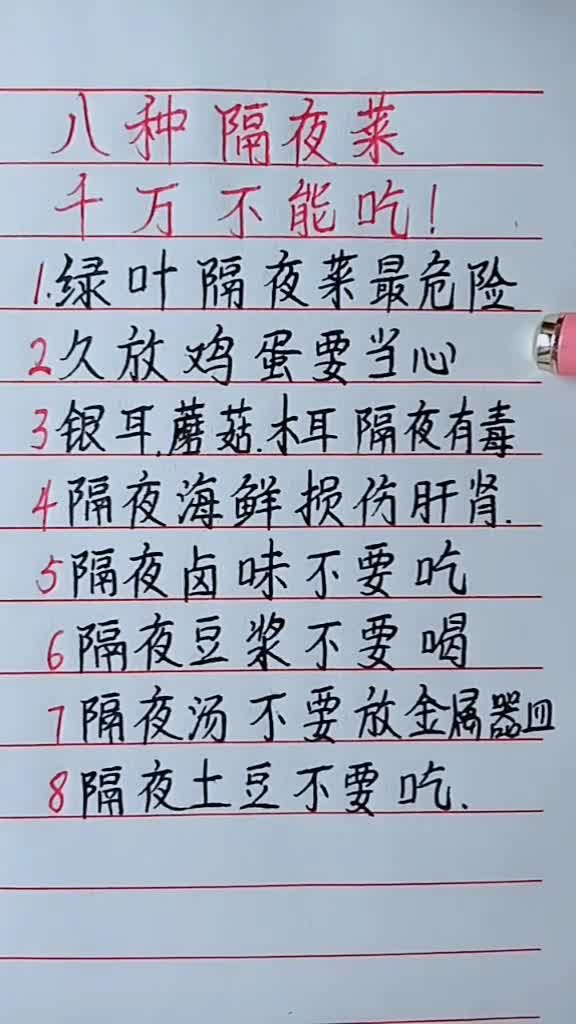 八种隔夜菜
千万不能吃!
1.绿叶隔夜菜最危险
2久放鸡蛋要当心
3银耳,蘑菇.木耳隔夜有毒
4隔夜海鲜损伤肝肾.
5隔夜卤味不要吃
6隔夜豆浆不要喝
7隔夜汤不要放金属器皿
8隔夜土豆不要吃.